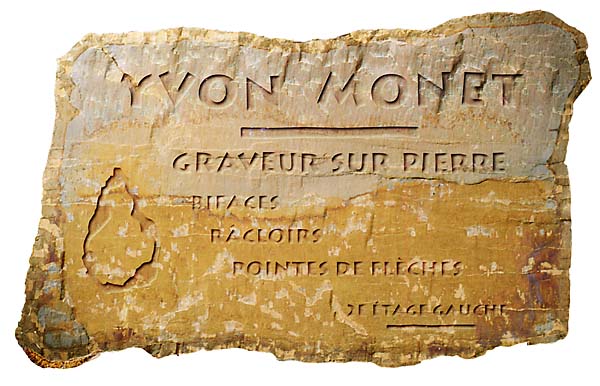 YVON MONET
GRAVEUR SUR PIERRE
BIFACES
RÂCLOIRS
POINTES DE FLÈCHES
2E ÉTAGE GAUCHE